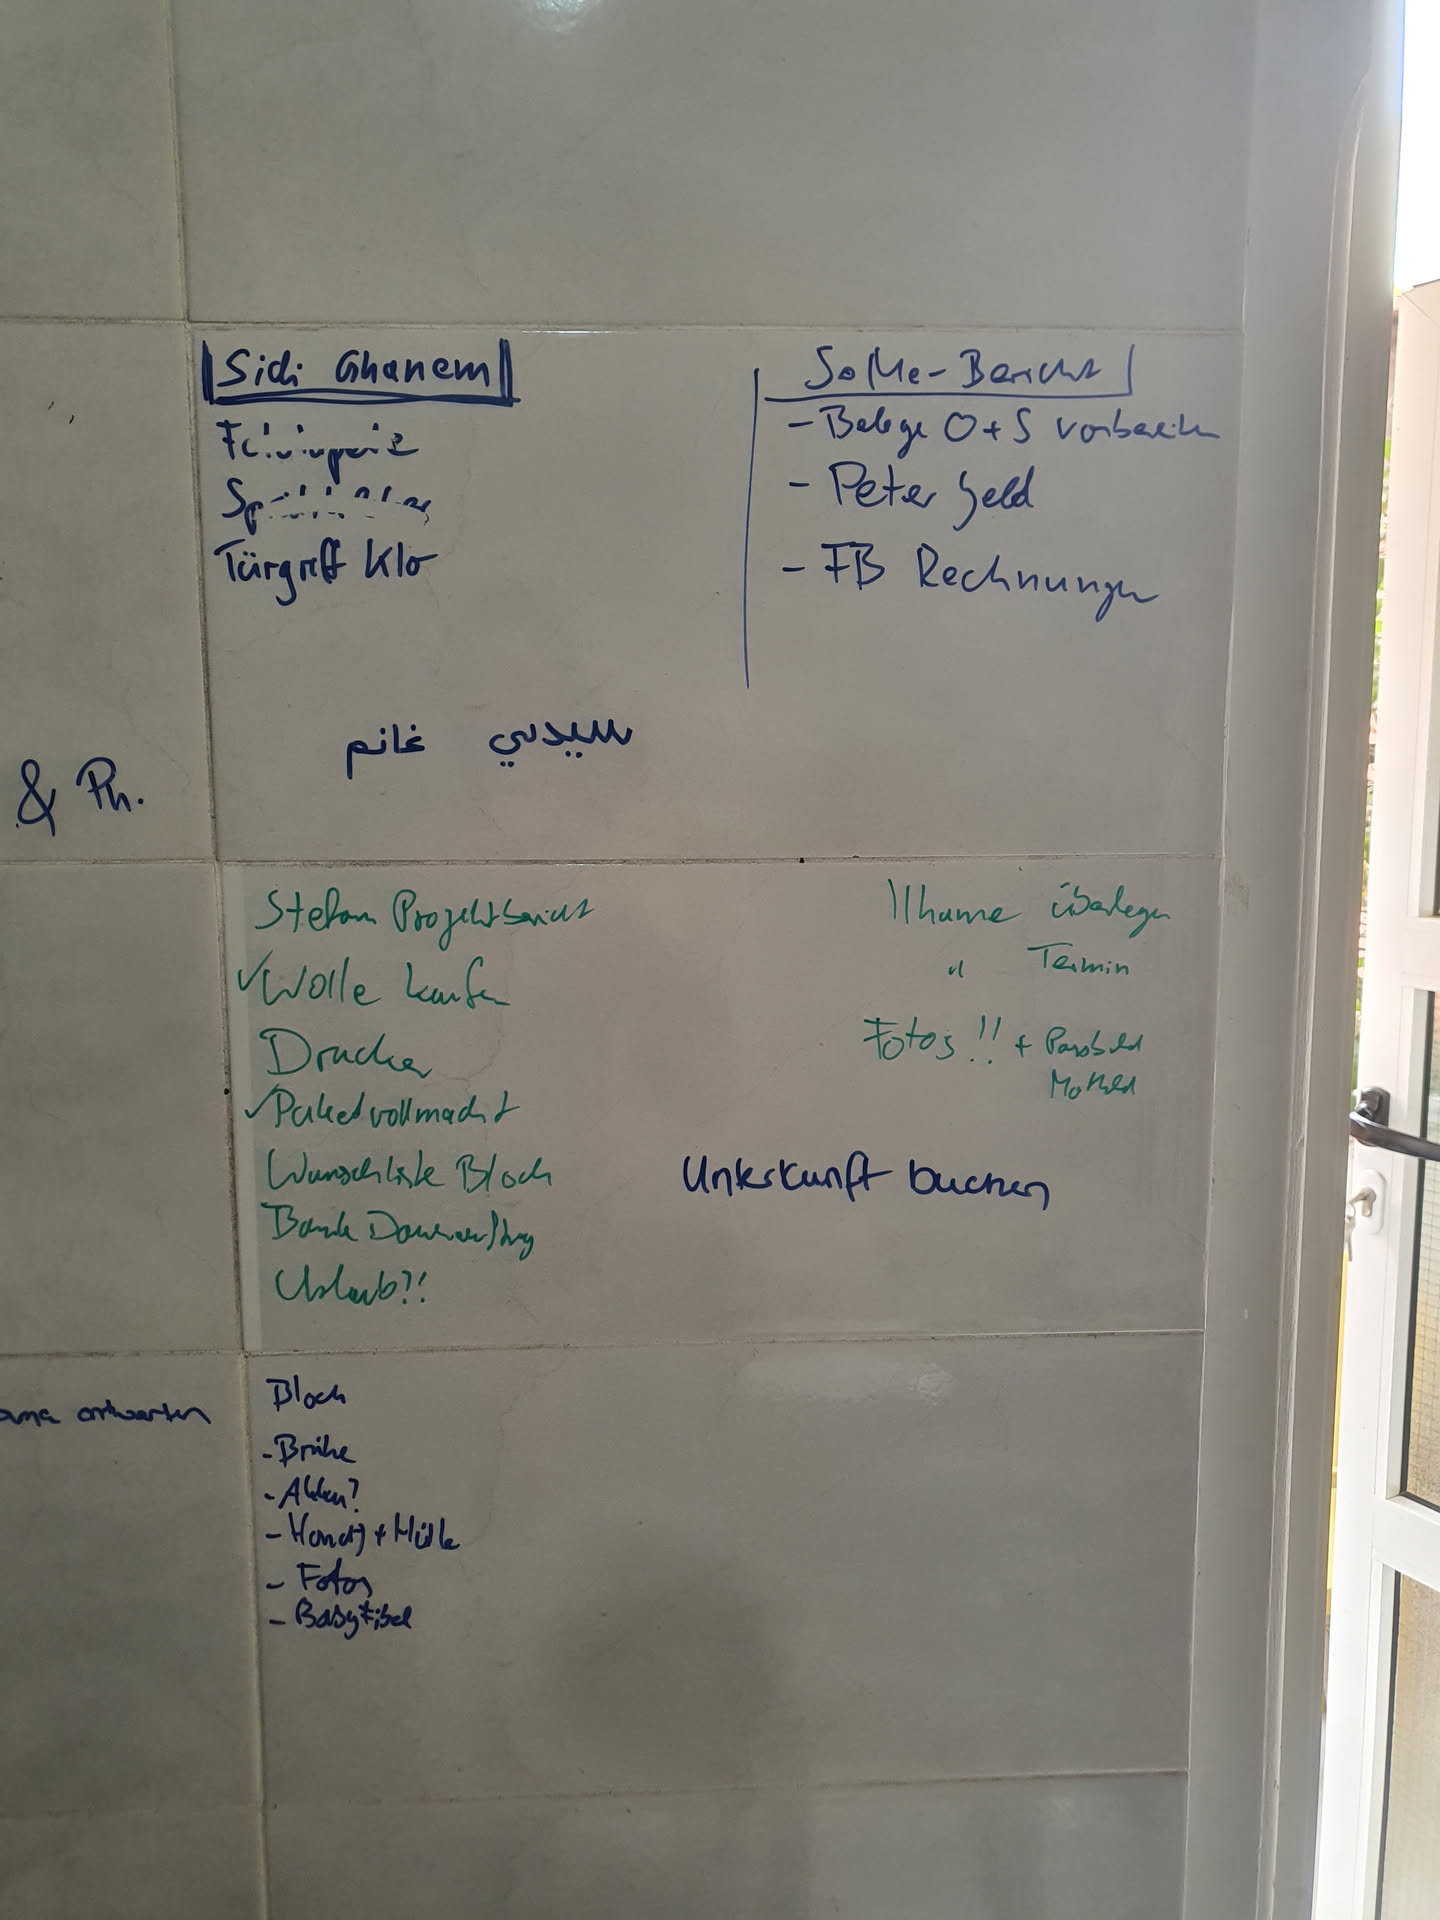 Sidi Ghanem
Türgriff Klo
SoMe-Bericht
- Belege O+S vorbereiten
- Peter Geld
- FB Rechnungen
سيدي غانم
& Ph.
Stefan Projektbericht
✓Wolle kaufen
Drucker
✓Paketvollmacht
Wunschliste Bloch
Bank Dauerauftrag
Urlaub?!
Ilhame überlegen
" Termin
Fotos!! + Passbild
Unterkunft buchen
antworten
Bloch
- Brühe
- Akku?
- Honig +
- Fotos
- Babyfibel